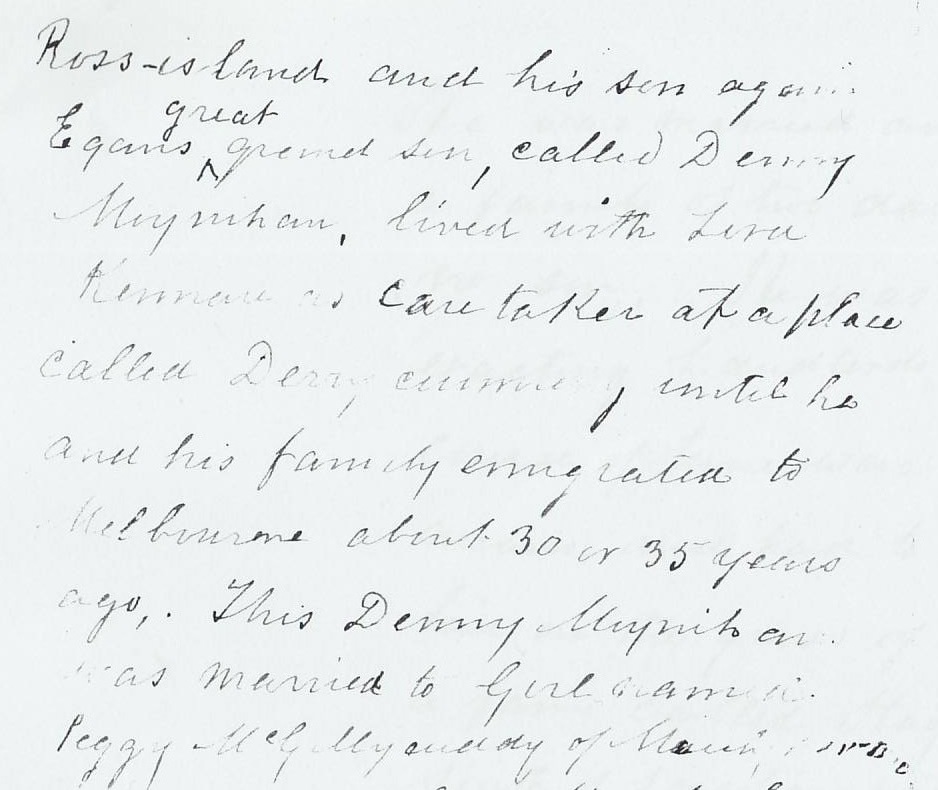 Ross-island and his son again
great
Egans grand son, called Denny
Moynihan, lived with Lord
Kenmare as care taker at a place
called Derrycunnihy until he
and his family emigrated to
Melbourne about 30 or 35 years
ago,. This Denny Moynihan
was married to Girl named
Peggy McGillycuddy of